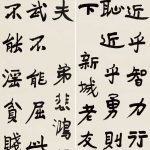 近乎智力行
恥近乎勇則
下
新城老友
不能淫貧賤
武不能屈此
夫
弟悲鴻